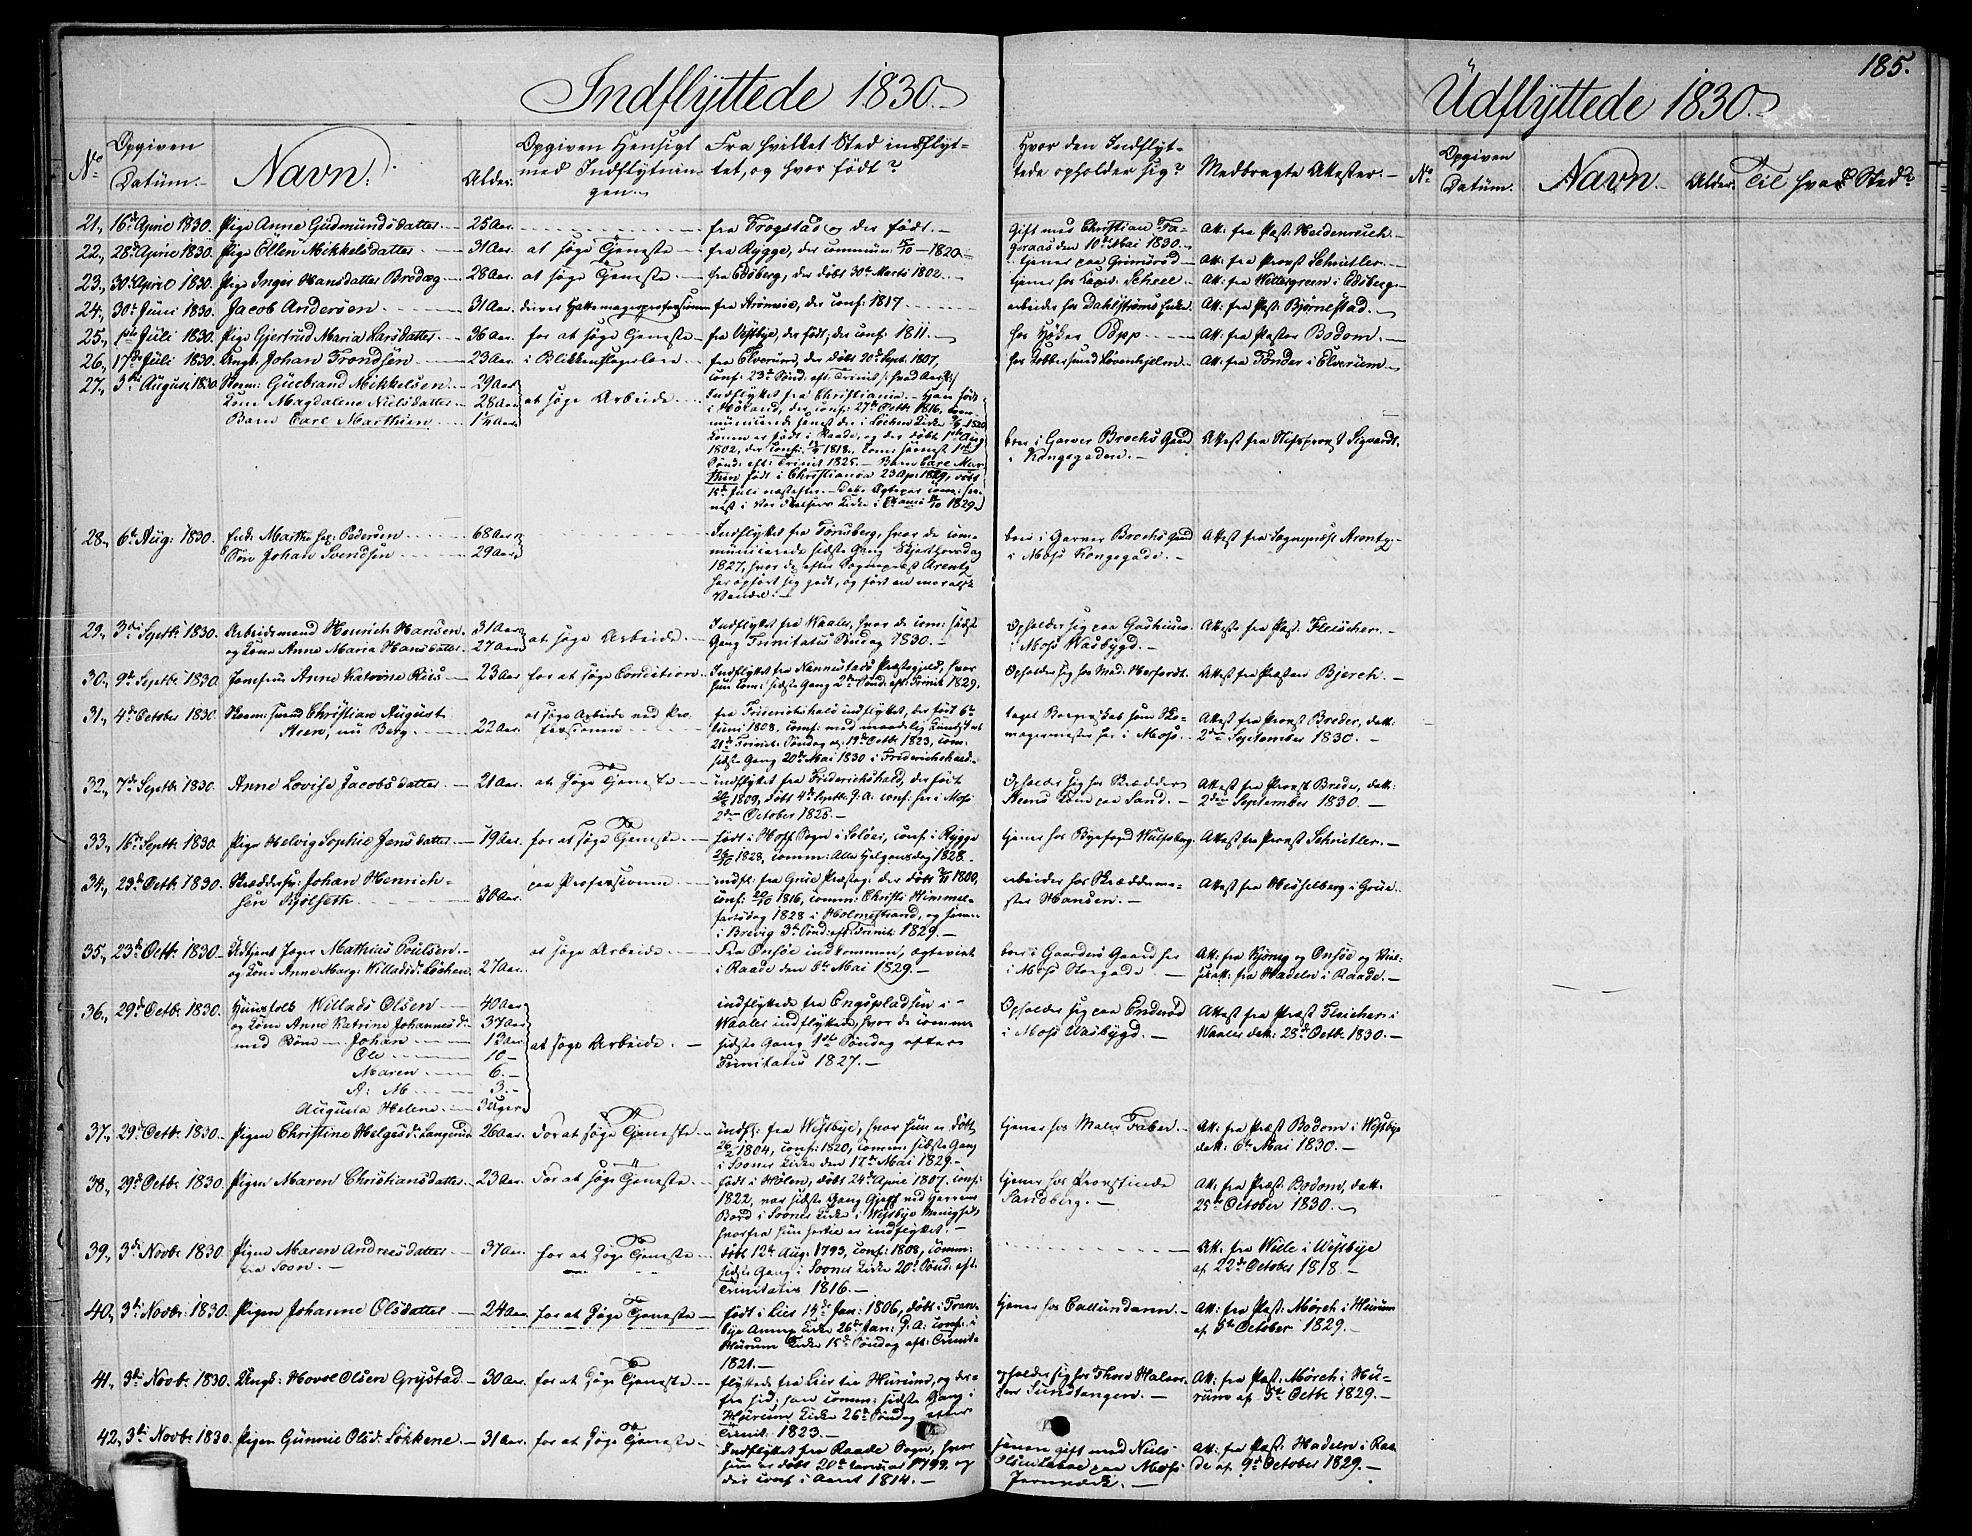 185.
Indflyttede 1830.
Udflyttede 1830.
No
Opgiven Datum.
Navn.
Alder.
Opgiven Hensigt med Indflytningen.
Fra hvilket Sted indflyttet, og hvor født?
Hvor den Indflyttede opholder sig?
Medbragte Attester.
No
Opgiven Datum.
Navn.
Alder.
Til hvad Sted?
21, 16de April 1830. Pige Anne Gudmundsdatter 25 Aar. fra Trøgstad og der født. Gift med Christian den 10de Mai 1830. Att: fra Past: Heidenreich.
22, 28de April 1830. Pige Ellen Mikkelsdatter 31 Aar. at søge Tjeneste fra Rygge, der 1820 tjener paa Grimsrød Att: fra Provst Schrøtler.
23, 30te April 1830. Pige Inger Hansdatter 28 Aar. at søge Tjeneste fra Edsberg, der døbt 30te Marts 1802. tjener hos Scheel Att: fra Wettergreen i Edsberg
24, 30te Juni 1830. Jacob Andersen 31 Aar. der conf: 1817 Att: fra Past: Bjørnestad.
25, 1ste Juli 1830. Pige Gjertrud Maria Larsdatter 36 Aar. for at søge Tjeneste fra Vestbye, der født, der conf: 1811. hos Høker Opp Att: fra Pastor Bodom.
26, 17de Juli 1830. Ungk. Johan Trondsen 23 Aar. fra Elverum, der døbt 20de Sept. 1807, conf: 23de Sønd. eft. Trinit Att: fra Tønder i Elverum
27, August 1830. Gulbrand Mikkelsen 29 Aar
Kone Magdalene Nielsdatter 28 Aar
Barn Carl Marthin 1½ Aar
at søge Arbeide
Indflyttet fra Christiania
boer i Garver Brochs Gaard i Kongegaden.
Attest fra Stiftsprovst Sigvardt
28, 6te Aug: 1830. Enk. Marthe Pedersen 68 Aar
Søn Johan Svendsen 29 Aar
Indflyttet fra Tønsberg, hvor de communicerede sidste Gang Skjertorsdag 1827, hvor de efter Sogneprest Arentz har opført sig godt, og ført en moralsk Vandel.
boer i Garver Brochs Gaard i Moss Kongegade.
Attest fra Sogneprest Arentz.
29, 3de Septb: 1830. Arbeidsmand Henrich Hansen 31 Aar
og Kone Anne Maria Hansdatter 27 Aar
at søge Arbeide.
Indflyttet fra Waaler, hvor de com: sidste Gang Trinitatis Søndag 1830.
Opholder sig paa i Moss Vasbygd.
Attest fra Past: Fleischer.
30, 9de Septb: 1830. Jomfrue Anne Katrine Riis 23 Aar for at søge Condition. Indflyttet fra Nannestads Præstegjeld, hvor hun com: sidste Gang 2den Sønd: eft: Trinit 1829. Opholder sig hos Mad: Herfordt. Attest fra Præsten Bjerch.
31, 4de October 1830 Svend Christian August Steen, nu Berg 22 Aar. at søge Arbeide ved Professionen
fra Friderichshald indflyttet, der født 6te Juni 1808, sidste Gang 20de Mai 1830 i Friderichshald.
taget Borgerskab som Skomagermester her i Moss.
Attest fra Provst Breder, dat: 2den September 1830.
32, 7de Septb: 1830. Anne Lovise Jacobsdatter 21 Aar. at søge Tjeneste indflyttet fra Friderichshald, der født 1809, døbt 4de Septb: conf: her i Moss 2den October 1825. Opholder sig hos Skredder Steens Kone paa Sand. Attest fra Provst Breder, dat: 2den September 1830.
33, 16de Septb: 1830 Pige Helvig Sophie Jensdatter 19 Aar. for at søge Tjeneste født i Hoff Sogn i Soløer, conf: i Rygge 1823, comm: Alle Helgensdag 1828. tjener hos Byefoged Wulfsberg Attest fra Provst Schrøtler.
34, 23de Octb: 1830. Skreddersv: Johan Henrichsen Kjølseth 30 Aar. paa Professionen indfl: fra Grue Præsteg: der døbt 1800, conf: 1816, comm: Christi Himmelfartsdag 1828 i Holmestrand, og senere i Brevig 3de Sønd: eft: Trinit: 1829. arbeider hos Skreddermester Hansen. Attest fra Hesselberg i Grue.
35, 23de Octb: 1830 Mathias Poulsen
og Kone Anne Marg: Willadsd: Løchen 27 Aar.
at søge Arbeide
fra Onsøe indkommen, egteviet i Raade den 6te Mai 1829.
boer i Gaarders Gaard her i Moss Storgade.
Att: fra Kjønig og Onsøe og att: fra Hadeln i Raade.
36, 29de Octb: 1830. Huusfolk Willads Olsen 40 Aar
og Kone Anne Katrine Johannesd: 37 Aar
med Børn Johan 12 Aar
Ole 10
Maren 6.
A: M 3.
Augusta Helene 3 Uger
at søge Arbeide.
indflyttede fra Engepladsen i Waaler indflyttede, hvor de comm: sidste Gang 1ste Søndag efter Trinitatis 1827.
Opholder sig paa Enderød i Moss Vasbygd.
Attest fra Præst Fleischer i Waaler dat: 28de Octb: 1830.
37, 29de Octb: 1830. Pigen Christine Helgesd: 26 Aar. For at søge Tjeneste. indfl: fra Westbye, hvor hun er født 1804, conf: 1820, comm: sidste Gang i Soons Kirke den 17de Mai 1829. tjener hos Maler Faber. Att: fra Præst Bodom i Westbye dat: 6te Mai 1830.
38, 29de Octb: 1830 Pigen Maren Christiansdatter 23 Aar. For at søge Tjeneste. født i Hølen, døbt 24de April 1807. conf: 1822, var sidste Gang Gjest ved Herrens Bord i Soons Kirke i Westbye Menighed, hvorfra hun hertil er indflyttet. tjener hos Provstinde Sandberg. Att: fra Præst: Bodom, dat: 25de October 1830.
39, 3de Novbr: 1830 Pigen Maren Andreasdatter fra Soon. 37 Aar. for at søge Tjeneste døbt 12te Aug: 1793, conf: 1808, comm: sidste Gang i Soons Kirke 20de Sønd: eft: Trinitatis 1816. Att: fra Wille i Westbye af 22de October 1818.
40, 3de Novbr: 1830. Pigen Johanne Olsdatter 24 Aar. for at søge Tjeneste født i Lier 14de Jan: 1806, døbt i Tranbye Annex Kirke 26de Jan: conf: i Hurum Kirke 15de Søndag eft: Trinit: 1821. tjener hos Callundann. Att: fra Past: Mørch i Hurum af 5te October 1829.
41, 3de Novbr: 1830. Ungk: Hovel Olsen Grystad 30 Aar. for at søge Tjeneste flyttede fra Lier til Hurum, og derfra hid; han comm: sidste Gang i Hurum Kirke 26de Søndag efter Trinit: 1823. opholder sig hos Thore Halvorsen Sundtangen. Att: fra Past: Mørch i Hurum af 5te Octb: 1829.
42, 3de Novbr: 1830. Pigen Gunnil Olsd: Løkkene. 31 Aar. for at søge Tjeneste. Indflyttet fra Raade Sogn, hvor hun er døbt 20de Januar 1799, og der conf: i Aaret 1814. gift med Niels paa Moss Jernværk. Att: fra Past: Hadeln i Raade af 9de October 1829.